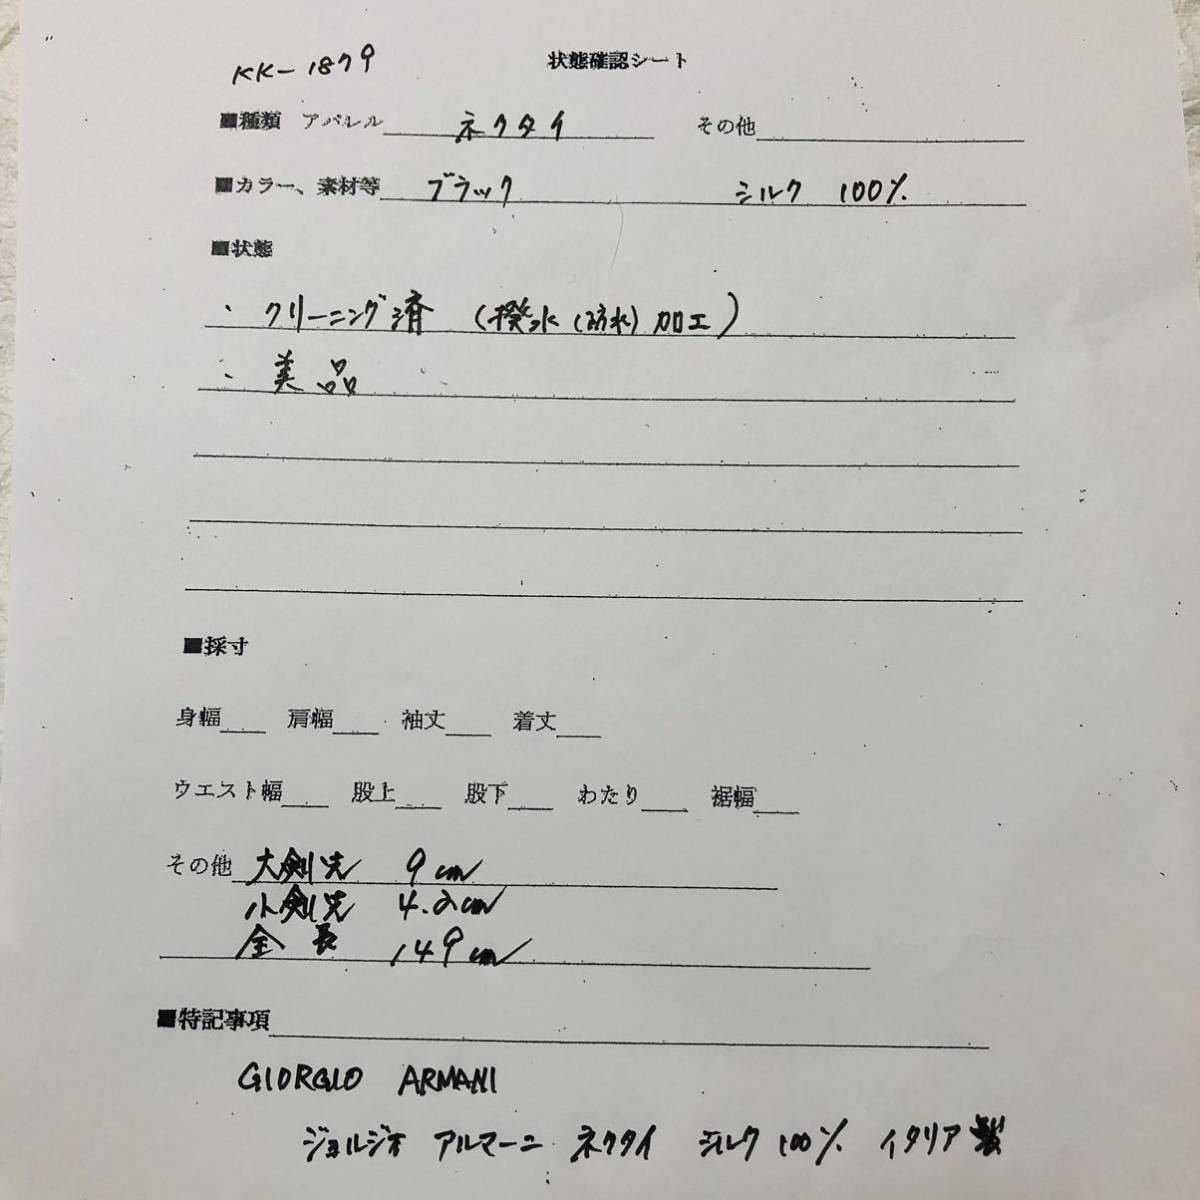 KK-1879
状態確認シート
■種類 アパレル ネクタイ その他
■カラー、素材等 ブラック シルク 100%
■状態
・クリーニング済 (撥水(防水)加工)
・美品
■採寸
身幅 肩幅 袖丈 着丈
ウエスト幅 股上 股下 わたり 裾幅
その他 大剣先 9cm
小剣先 4.2cm
全長 149cm
■特記事項
GIORGIO ARMANI
ジョルジオ アルマーニ ネクタイ シルク100% イタリア製